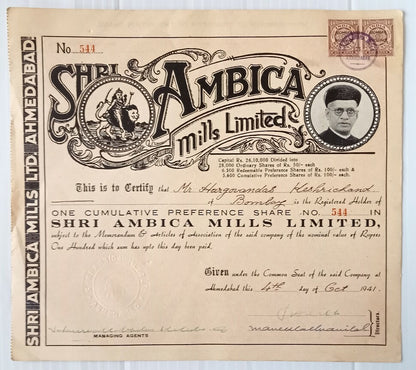 SHRI AMBICA MILLS LTD. AHMEDABAD.
No. 544
SHRI AMBICA
Mills Limited.
Capital Rs. 26,10,000 Divided into
Ordinary Shares of Rs. 50/- each
Redeemable Preference Shares of Rs. 100/- each &
Cumulative Preference Shares of Rs. 100/- each.
This is to Certify that Mr Hargovandas
of Bombay is the Registered Holder of
ONE CUMULATIVE PREFERENCE SHARE NO. 544 IN
SHRI AMBICA MILLS LIMITED,
subject to the Memorandum & Articles of Association of the said company of the nominal value of Rupees
One Hundred which sum has upto this day been paid.
Given under the Common Seal of the said Company at
Ahmedabad this 4th day of Oct 1941.
MANAGING AGENTS
Directors.